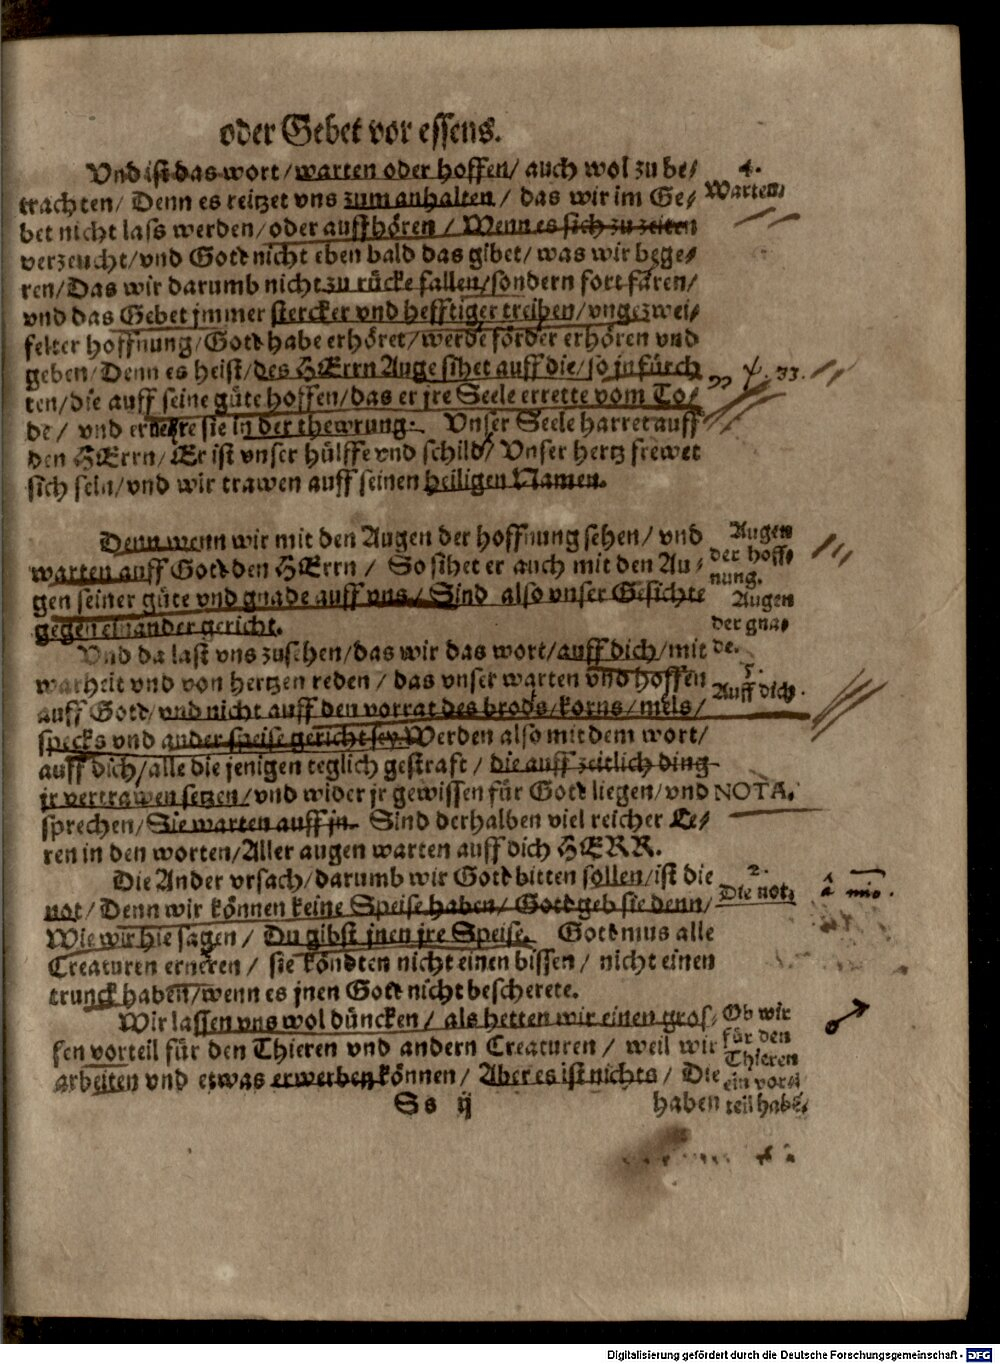 oder Gebet vor essens.
Vnd ist das wort/warten oder hoffen/ auch wol zu be/
trachten/ Denn es reitzet vns zum anhalten / das wir im Ge/
bet nicht lass werden/oder auffhören / Wenn es sich zu zeiten
verzeucht/vnd Gott nicht eben bald das gibet/ was wir bege/
ren/Das wir darumb nicht zu rücke fallen/sondern fort faren/
vnd das Gebet jmmer stercker vnd hefftiger treiben/vngezwei/
felter hoffnung/Gott habe erhöret/werde förder erhören vnd
geben/Denn es heist/des HErrn Auge sihet auff die/so jn fürch
ten/die auff seine güte hoffen/das er jre Seele errette vom To/
de / vnd ernehre sie in der thewrung. Vnser Seele harret auff
den HErrn/Er ist vnser hülffe vnd schild/ Vnser hertz frewet
sich sein/vnd wir trawen auff seinen heiligen Namen.
4.
Warten.
ψ. 33.
Denn wenn wir mit den Augen der hoffnung sehen/ vnd
warten auff Gott den HErrn / So sihet er auch mit den Au/
gen seiner güte vnd gnade auff vns/ Sind also vnser Gesichte
gegen einander gericht.
Augen
der hoff/
nung.
Augen
der gna/
de.
Vnd da last vns zusehen/das wir das wort/auff dich/mit
warheit vnd von hertzen reden / das vnser warten vnd hoffen
auff Gott/vnd nicht auff den vorrat des brods/korns/mels/
specks vnd ander speise gericht sey. Werden also mit dem wort/
auff dich/alle die jenigen teglich gestraft / die auff zeitlich ding
jr vertrawen setzen/vnd wider jr gewissen für Gott liegen/vnd
sprechen/Sie warten auff jn. Sind derhalben viel reicher Le/
ren in den worten/Aller augen warten auff dich HERR.
5.
Auff dich.
NOTA.
Die Ander vrsach/darumb wir Gott bitten sollen/ist die
not/ Denn wir können keine Speise haben/ Gott geb sie denn/
Wie wir hie sagen / Du gibst jnen jre Speise. Gott mus alle
Creaturen erneren / sie köndten nicht einen bissen / nicht einen
trunck haben/wenn es jnen Gott nicht bescherete.
2.
Die not;
Wir lassen vns wol düncken / als hetten wir einen gros/
sen vorteil für den Thieren vnd andern Creaturen / weil wir
arbeiten vnd etwas erwerben können / Aber es ist nichts / Die
Ob wir
für den
Thieren
ein vor/
teil habē/
Ss ij
haben
Digitalisierung gefördert durch die Deutsche Forschungsgemeinschaft - DFG